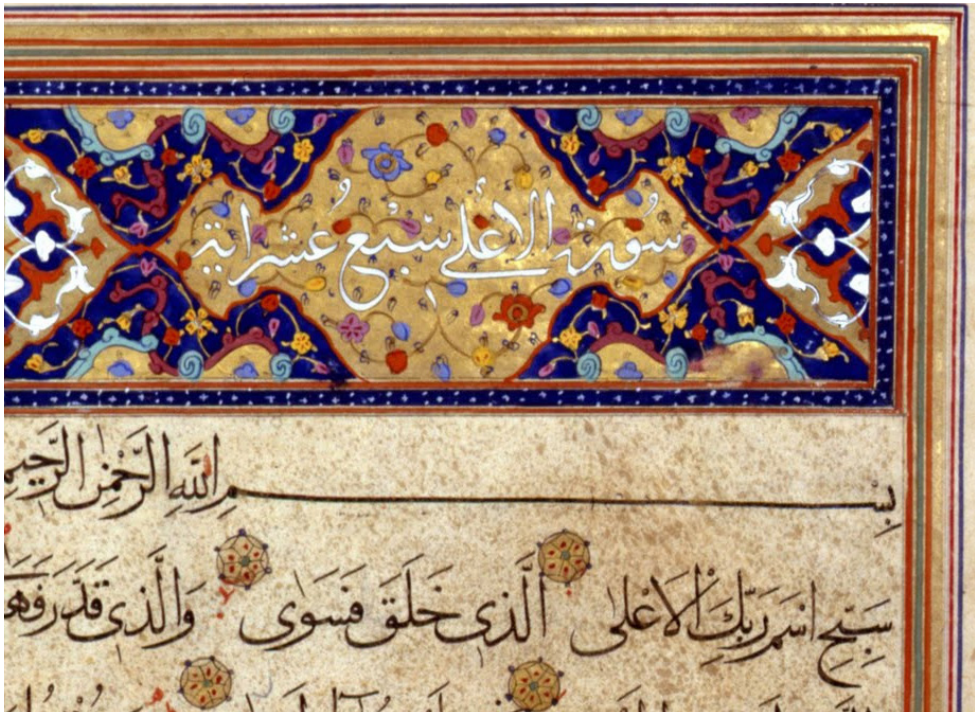 سُورَة الاَعْلى سَبْع عُشْر ايَة
بِسْمِ اللَّهِ الرَّحْمٰنِ الرَّحِيمِ
سَبِّحِ اسْمَ رَبِّكَ الْاَعْلَى الَّذِى خَلَقَ فَسَوَّى وَالَّذِى قَدَّرَ فَهَ